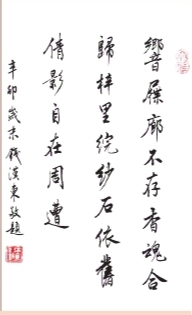 響屧廊不存香魂合
歸梓里浣紗石依舊
倩影自在周遭
辛卯歲末錢漢東敬題